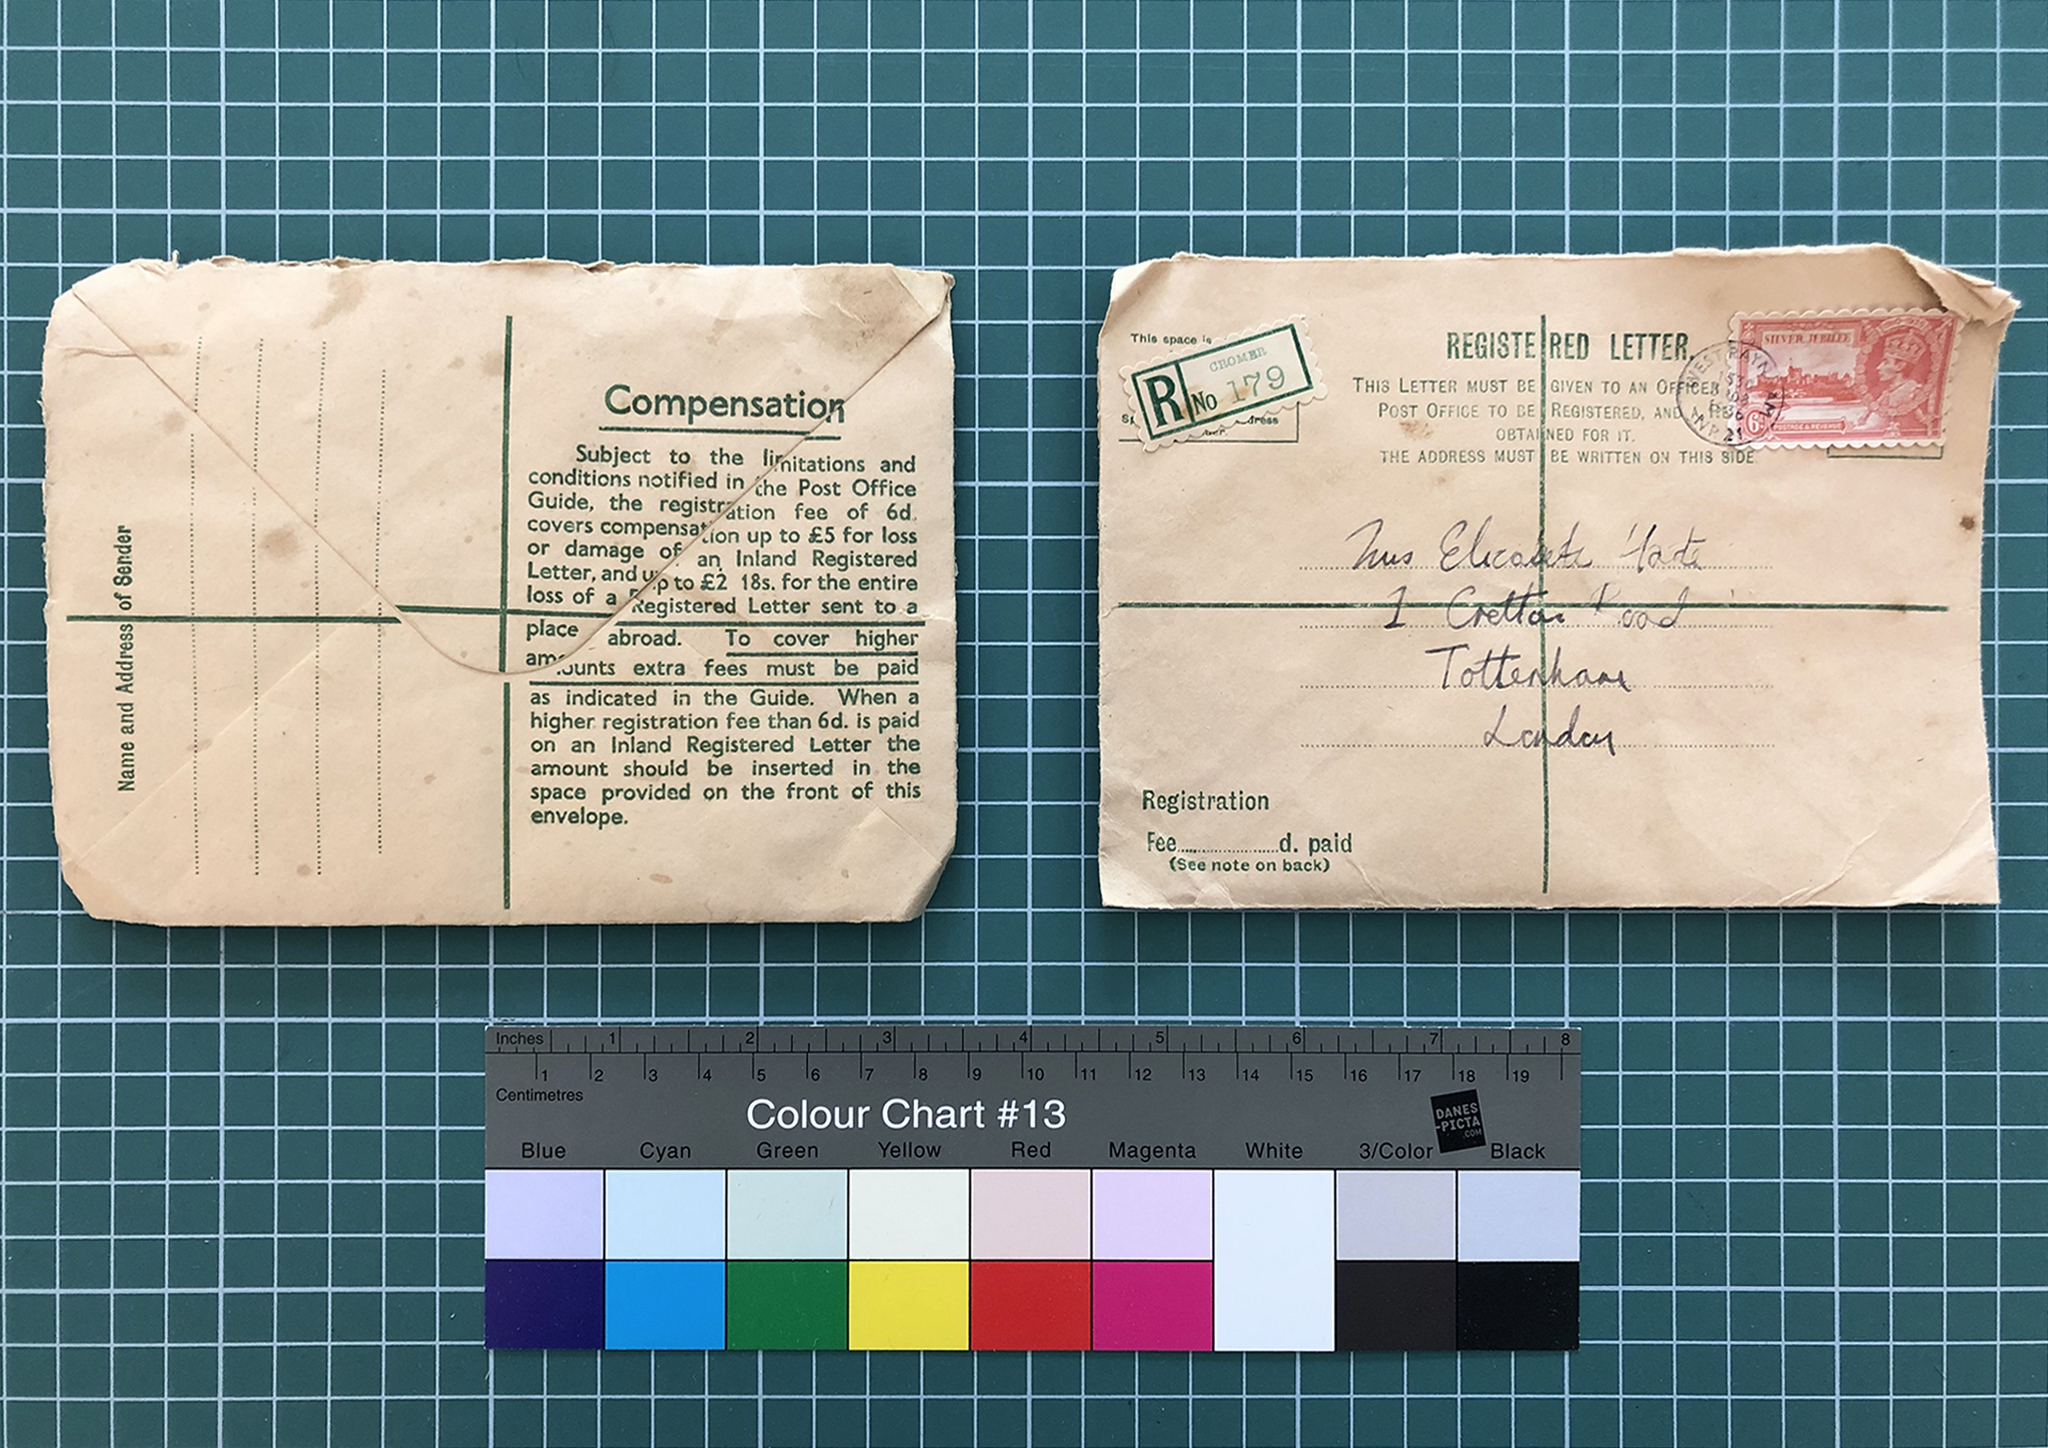 Name and Address of Sender
Compensation
Subject to the limitations and
conditions notified in the Post Office
Guide, the registration fee of 6d.
covers compensation up to £5 for loss
or damage of an Inland Registered
Letter, and up to £2 18s. for the entire
loss of a Registered Letter sent to a
place abroad. To cover higher
amounts extra fees must be paid
as indicated in the Guide. When a
higher registration fee than 6d. is paid
on an Inland Registered Letter the
amount should be inserted in the
space provided on the front of this
envelope.
This space is
R No 179
CROMER
REGISTERED LETTER.
THIS LETTER MUST BE GIVEN TO AN OFFICER
POST OFFICE TO BE REGISTERED, AND A
OBTAINED FOR IT.
THE ADDRESS MUST BE WRITTEN ON THIS SIDE
SILVER JUBILEE
6
POSTAGE & REVENUE
WEST RAYN
21
Elizabeth
1 Road
Tottenham
London
Registration
Fee....................d. paid
(See note on back)
Inches 1 2 3 4 5 6 7 8
1 2 3 4 5 6 7 8 9 10 11 12 13 14 15 16 17 18 19
Centimetres
Colour Chart #13
DANES
-PICTA
.COM
Blue Cyan Green Yellow Red Magenta White 3/Color Black